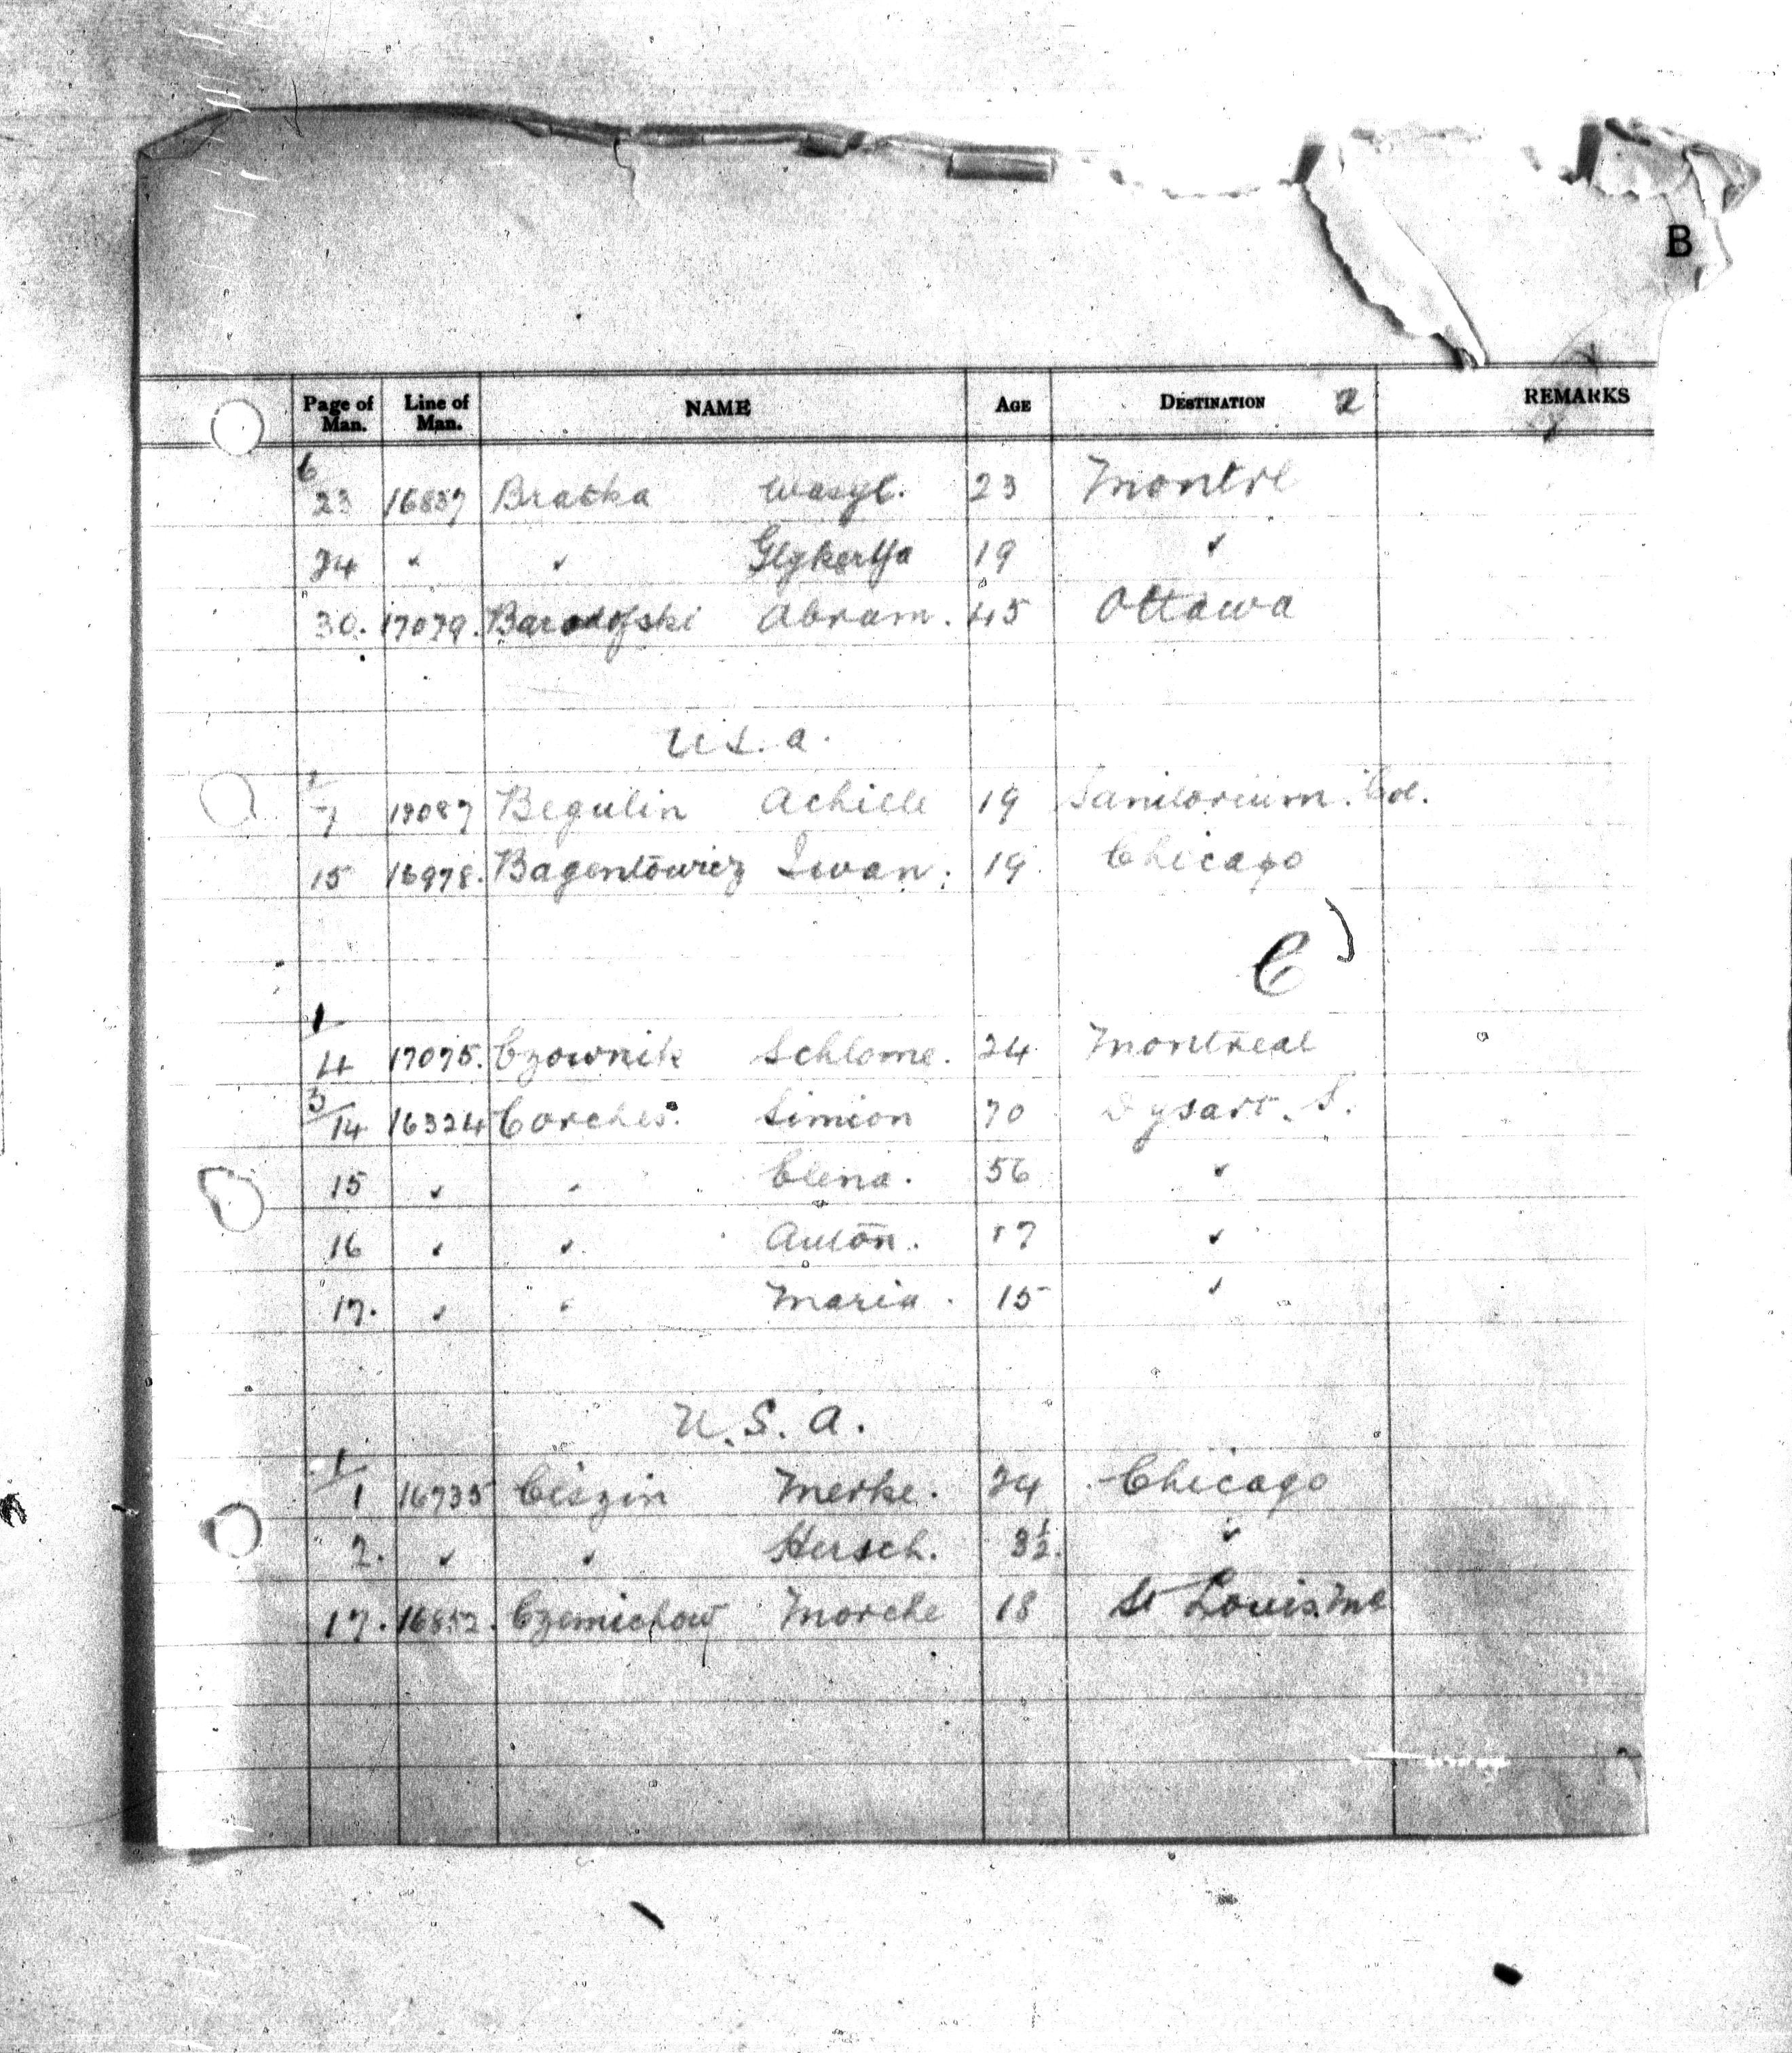 B
Page of Man. Line of Man. NAME AGE DESTINATION 2 REMARKS
6
23 16857 Bratka Wasyl. 23 Montrl
24 " " Glykerya 19 "
30. 17079. Abram. 45 Ottawa
U.S.A.
1
7 17087 Begulin Achille 19 Sanitorium. Col.
15 16978. Bagentowicz Iwan. 19 Chicago
C
1
4 17075. Czownik Schlome. 24 Montreal
3
14 16324 Corches. Simion 70 Dysart. S.
15 " " Elena. 56 "
16 " " Anton. 17 "
17. " " Maria. 15 "
U.S.A.
1
1 16735 Ciszin Merke. 24 Chicago
2. " " Hersch. 3½. "
17. 16852. Czemichow Morche 18 St Louis. Mo